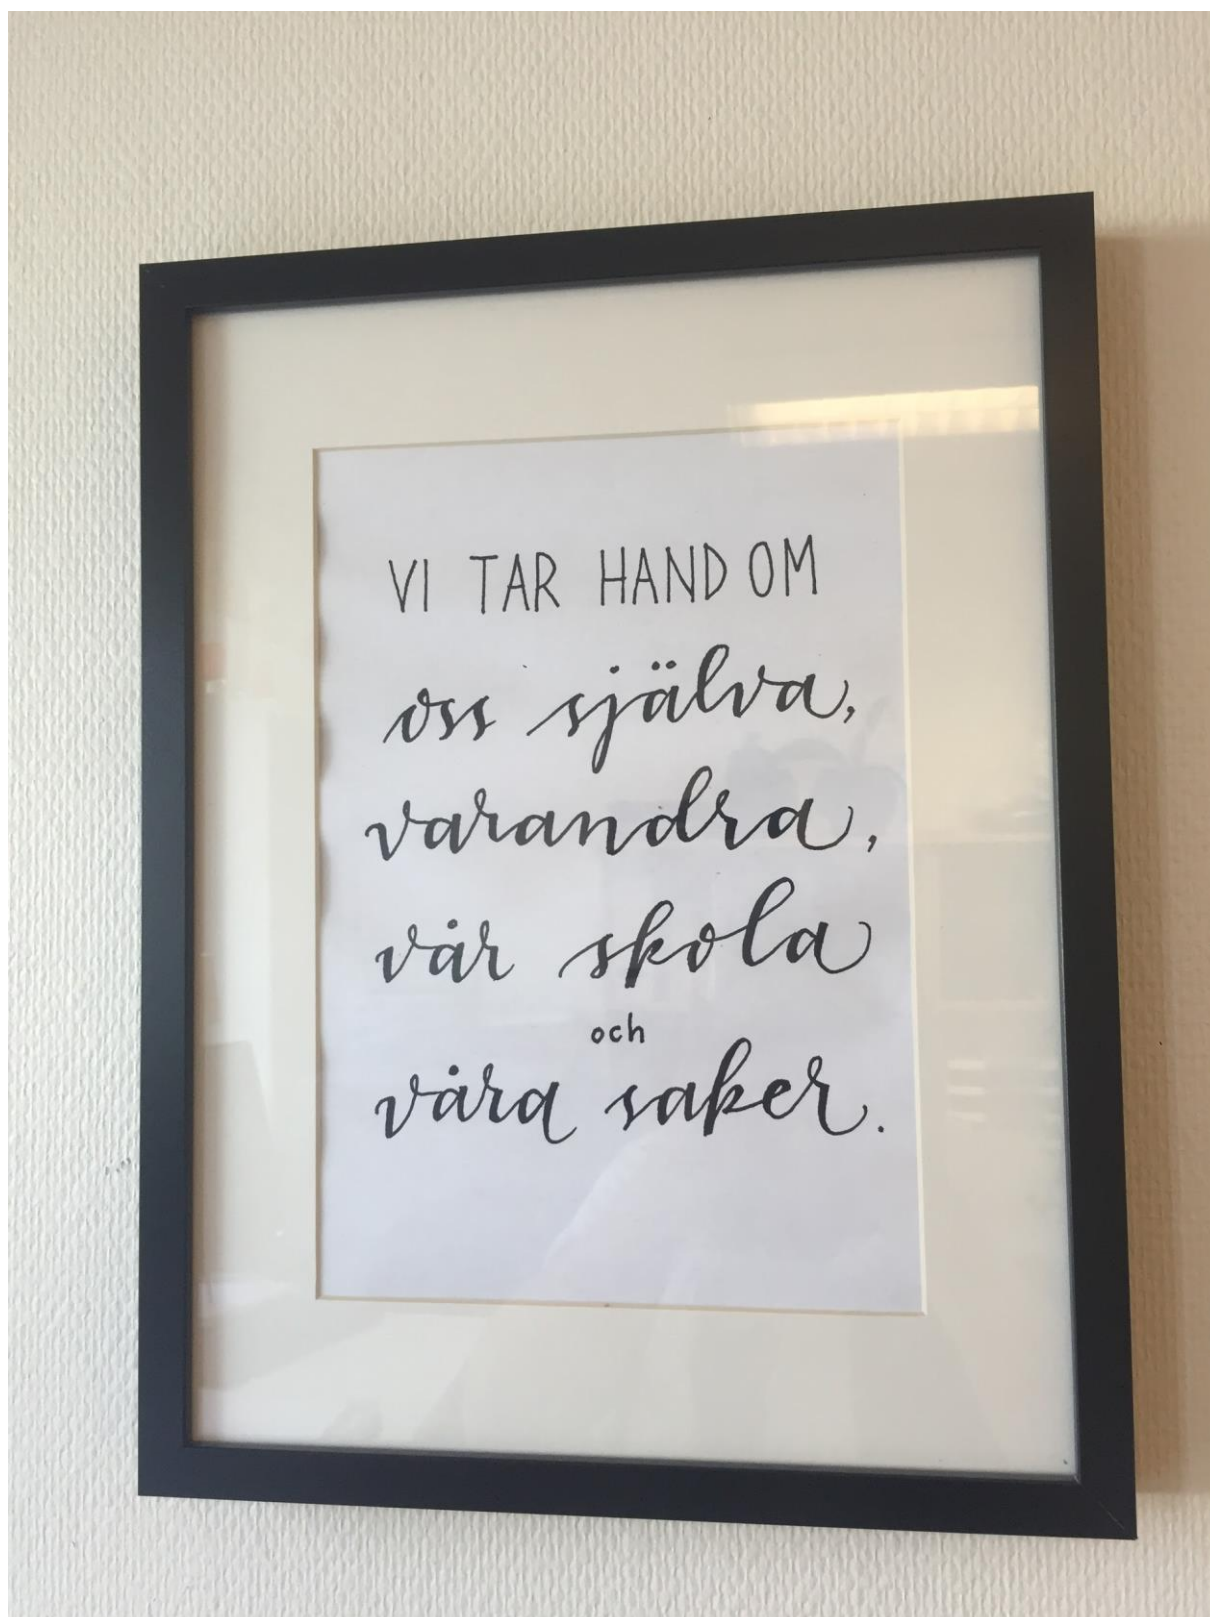 VI TAR HAND OM
oss själva,
varandra,
vår skola
och
våra saker.